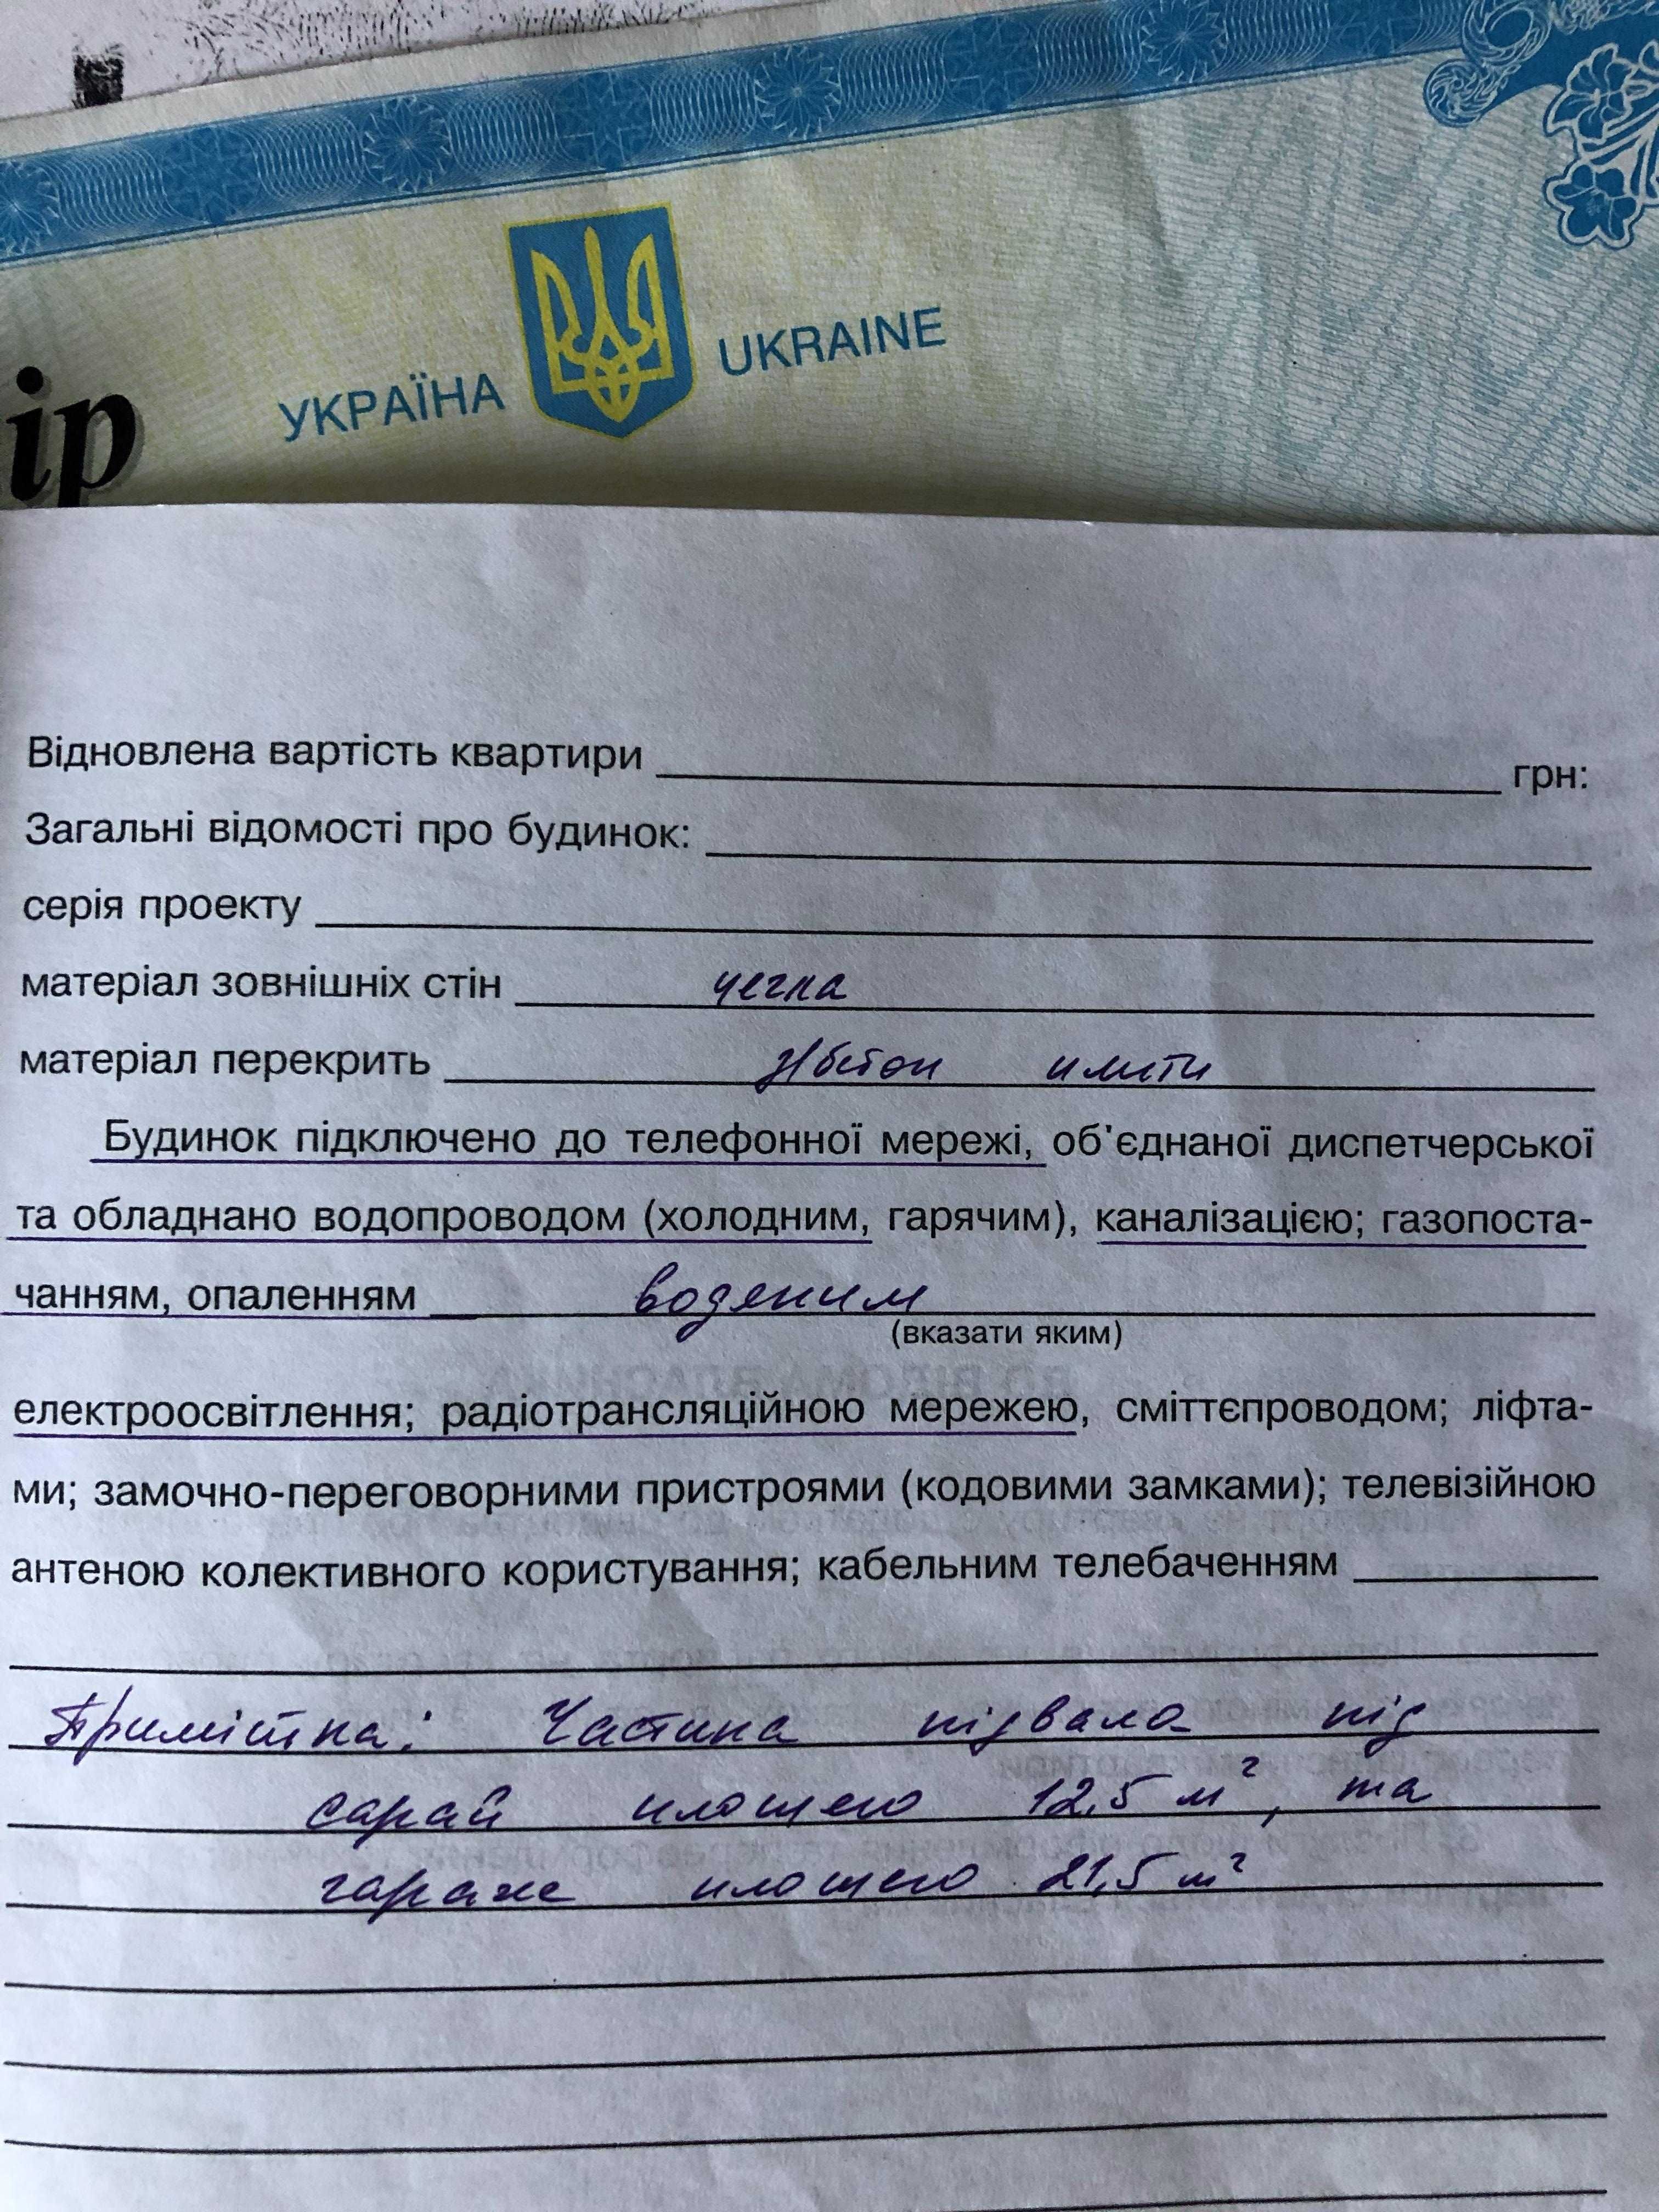 УКРАЇНА UKRAINE
ір
Відновлена вартість квартири грн:
Загальні відомості про будинок:
серія проекту
матеріал зовнішніх стін цегла
матеріал перекрить з/бетон плити
Будинок підключено до телефонної мережі, об'єднаної диспетчерської
та обладнано водопроводом (холодним, гарячим), каналізацією; газопоста-
чанням, опаленням водяним
(вказати яким)
електроосвітлення; радіотрансляційною мережею, сміттєпроводом; ліфта-
ми; замочно-переговорними пристроями (кодовими замками); телевізійною
антеною колективного користування; кабельним телебаченням
Примітка: Частина підвала під
сарай площею 12,5 м², та
гараж площею 21,5 м²